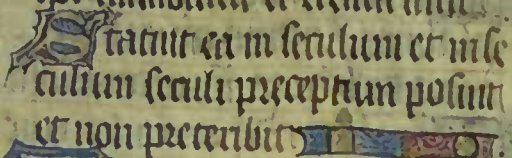 Statuit ea in seculum et in se
culum seculi preceptum posuit
et non preteribit